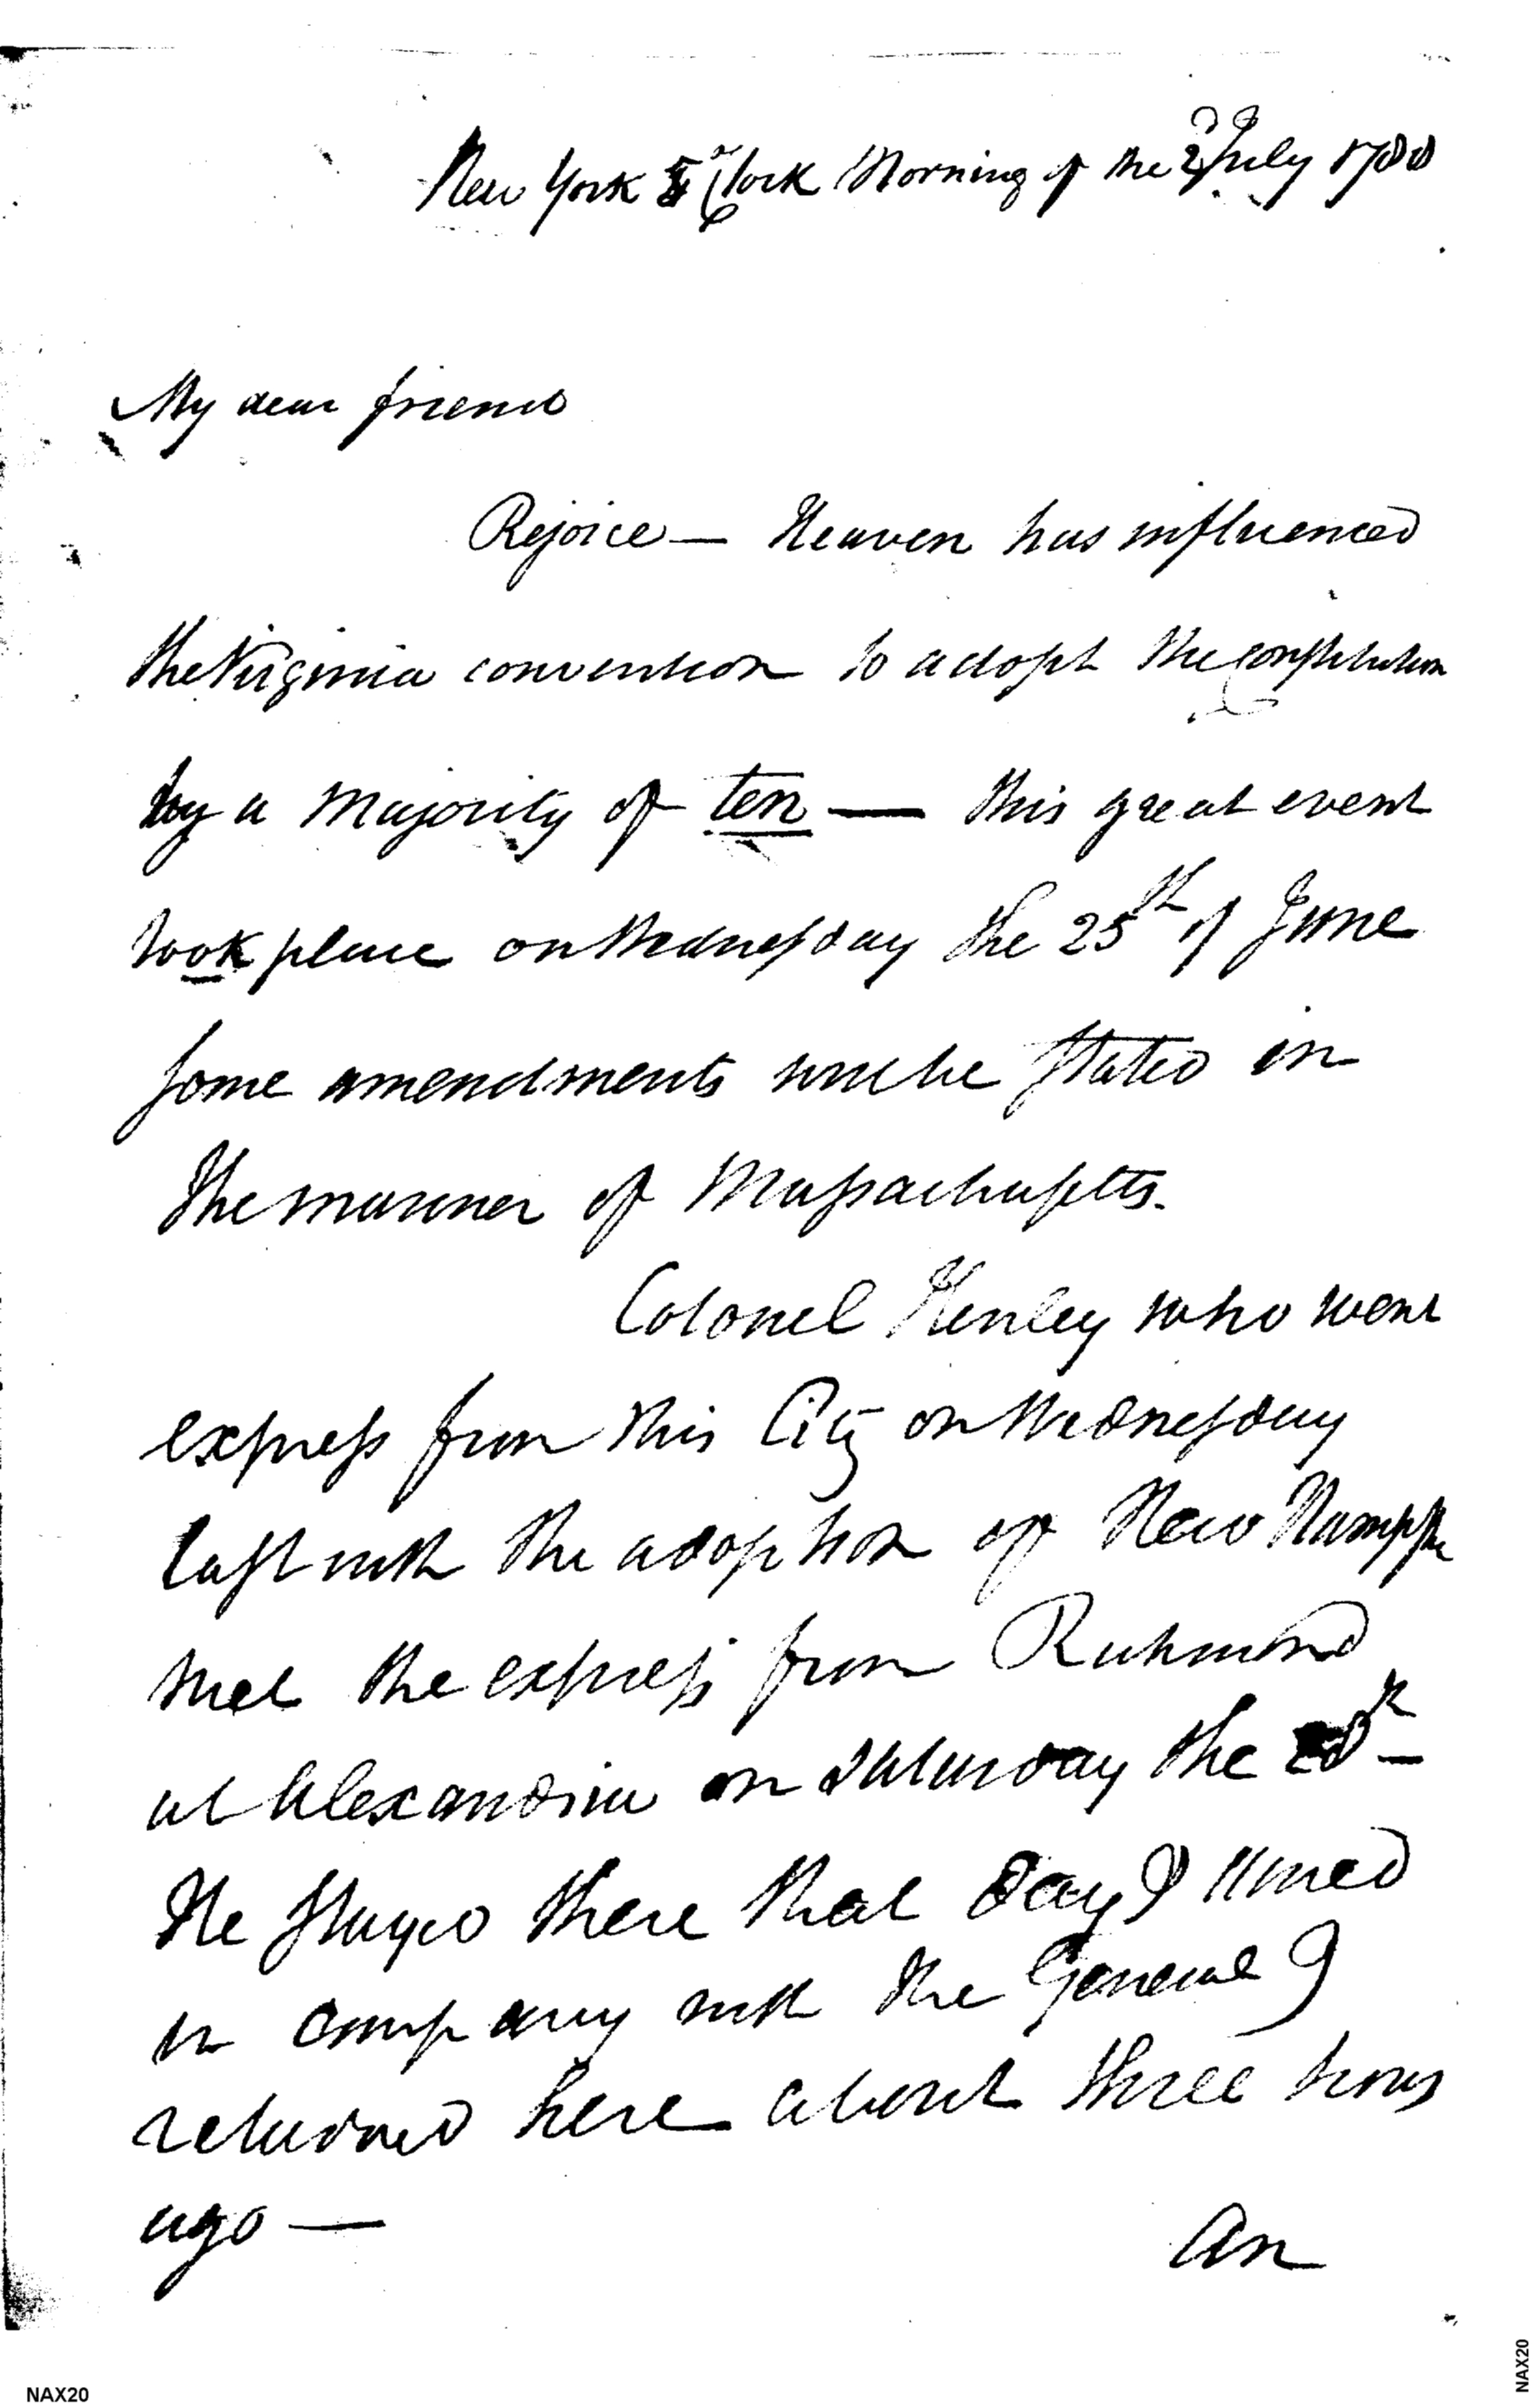 New York 5 oClock Morning of the 2d July 1788
My dear friend
Rejoice — Heaven has influenced
the Virginia convention to adopt the Constitution
by a majority of ten — this great event
took place on Wednesday the 25th of June
some amendments will be stated in
the manner of Massachusetts.
Colonel Henley who went
express from this City on Wednesday
last with the adoption of New Hampshe
met the express from Richmond
at Alexandria on Saturday the 28th —
He stayed there that day & dined
in company with the General &
returned here about three hours
ago —
An
NAX20
NAX20